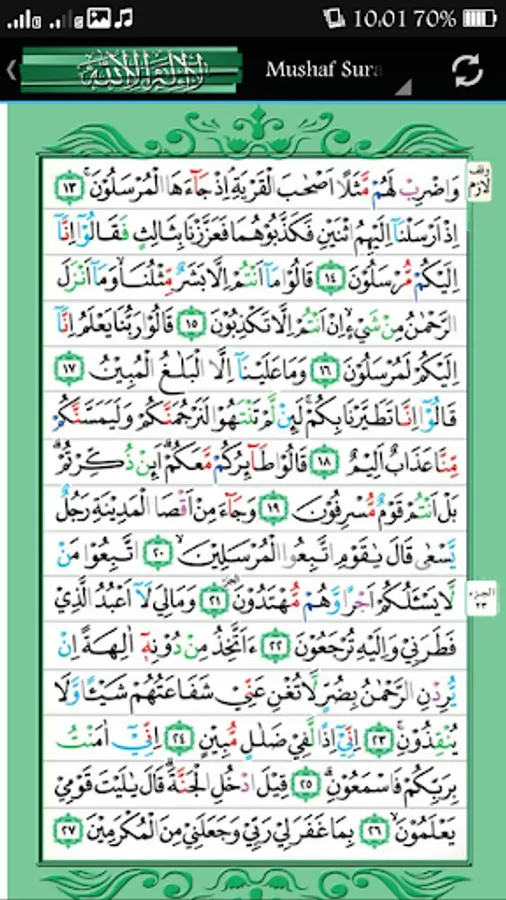 10.01 70%
لا إله إلا الله
Mushaf Sura
وَاضْرِبْ لَهُمْ مَّثَلًا اَصْحٰبَ الْقَرْيَةِۘ اِذْ جَاۤءَهَا الْمُرْسَلُوْنَۚ ١٣
وقف لازم
اِذْ اَرْسَلْنَآ اِلَيْهِمُ اثْنَيْنِ فَكَذَّبُوْهُمَا فَعَزَّزْنَا بِثَالِثٍ فَقَالُوْٓا اِنَّآ
اِلَيْكُمْ مُّرْسَلُوْنَ ١٤ قَالُوْا مَآ اَنْتُمْ اِلَّا بَشَرٌ مِّثْلُنَاۙ وَمَآ اَنْزَلَ
الرَّحْمٰنُ مِنْ شَيْءٍۙ اِنْ اَنْتُمْ اِلَّا تَكْذِبُوْنَ ١٥ قَالُوْا رَبُّنَا يَعْلَمُ اِنَّآ
اِلَيْكُمْ لَمُرْسَلُوْنَ ١٦ وَمَا عَلَيْنَآ اِلَّا الْبَلٰغُ الْمُبِيْنُ ١٧
قَالُوْٓا اِنَّا تَطَيَّرْنَا بِكُمْۚ لَىِٕنْ لَّمْ تَنْتَهُوْا لَنَرْجُمَنَّكُمْ وَلَيَمَسَّنَّكُمْ
مِّنَّا عَذَابٌ اَلِيْمٌ ١٨ قَالُوْا طَاۤىِٕرُكُمْ مَّعَكُمْۗ اَىِٕنْ ذُكِّرْتُمْۗ
بَلْ اَنْتُمْ قَوْمٌ مُّسْرِفُوْنَ ١٩ وَجَاۤءَ مِنْ اَقْصَا الْمَدِيْنَةِ رَجُلٌ
يَّسْعٰى قَالَ يٰقَوْمِ اتَّبِعُوا الْمُرْسَلِيْنَۙ ٢٠ اتَّبِعُوْا مَنْ
لَّا يَسْـَٔلُكُمْ اَجْرًا وَّهُمْ مُّهْتَدُوْنَ ٢١ وَمَالِيَ لَآ اَعْبُدُ الَّذِيْ
الجزء ٢٣
فَطَرَنِيْ وَاِلَيْهِ تُرْجَعُوْنَ ٢٢ ءَاَتَّخِذُ مِنْ دُوْنِهٖٓ اٰلِهَةً اِنْ
يُّرِدْنِ الرَّحْمٰنُ بِضُرٍّ لَّا تُغْنِ عَنِّيْ شَفَاعَتُهُمْ شَيْـًٔا وَّلَا
يُنْقِذُوْنِۚ ٢٣ اِنِّيْٓ اِذًا لَّفِيْ ضَلٰلٍ مُّبِيْنٍ ٢٤ اِنِّيْٓ اٰمَنْتُ
بِرَبِّكُمْ فَاسْمَعُوْنِۗ ٢٥ قِيْلَ ادْخُلِ الْجَنَّةَۗ قَالَ يٰلَيْتَ قَوْمِيْ
يَعْلَمُوْنَۙ ٢٦ بِمَا غَفَرَ لِيْ رَبِّيْ وَجَعَلَنِيْ مِنَ الْمُكْرَمِيْنَ ٢٧